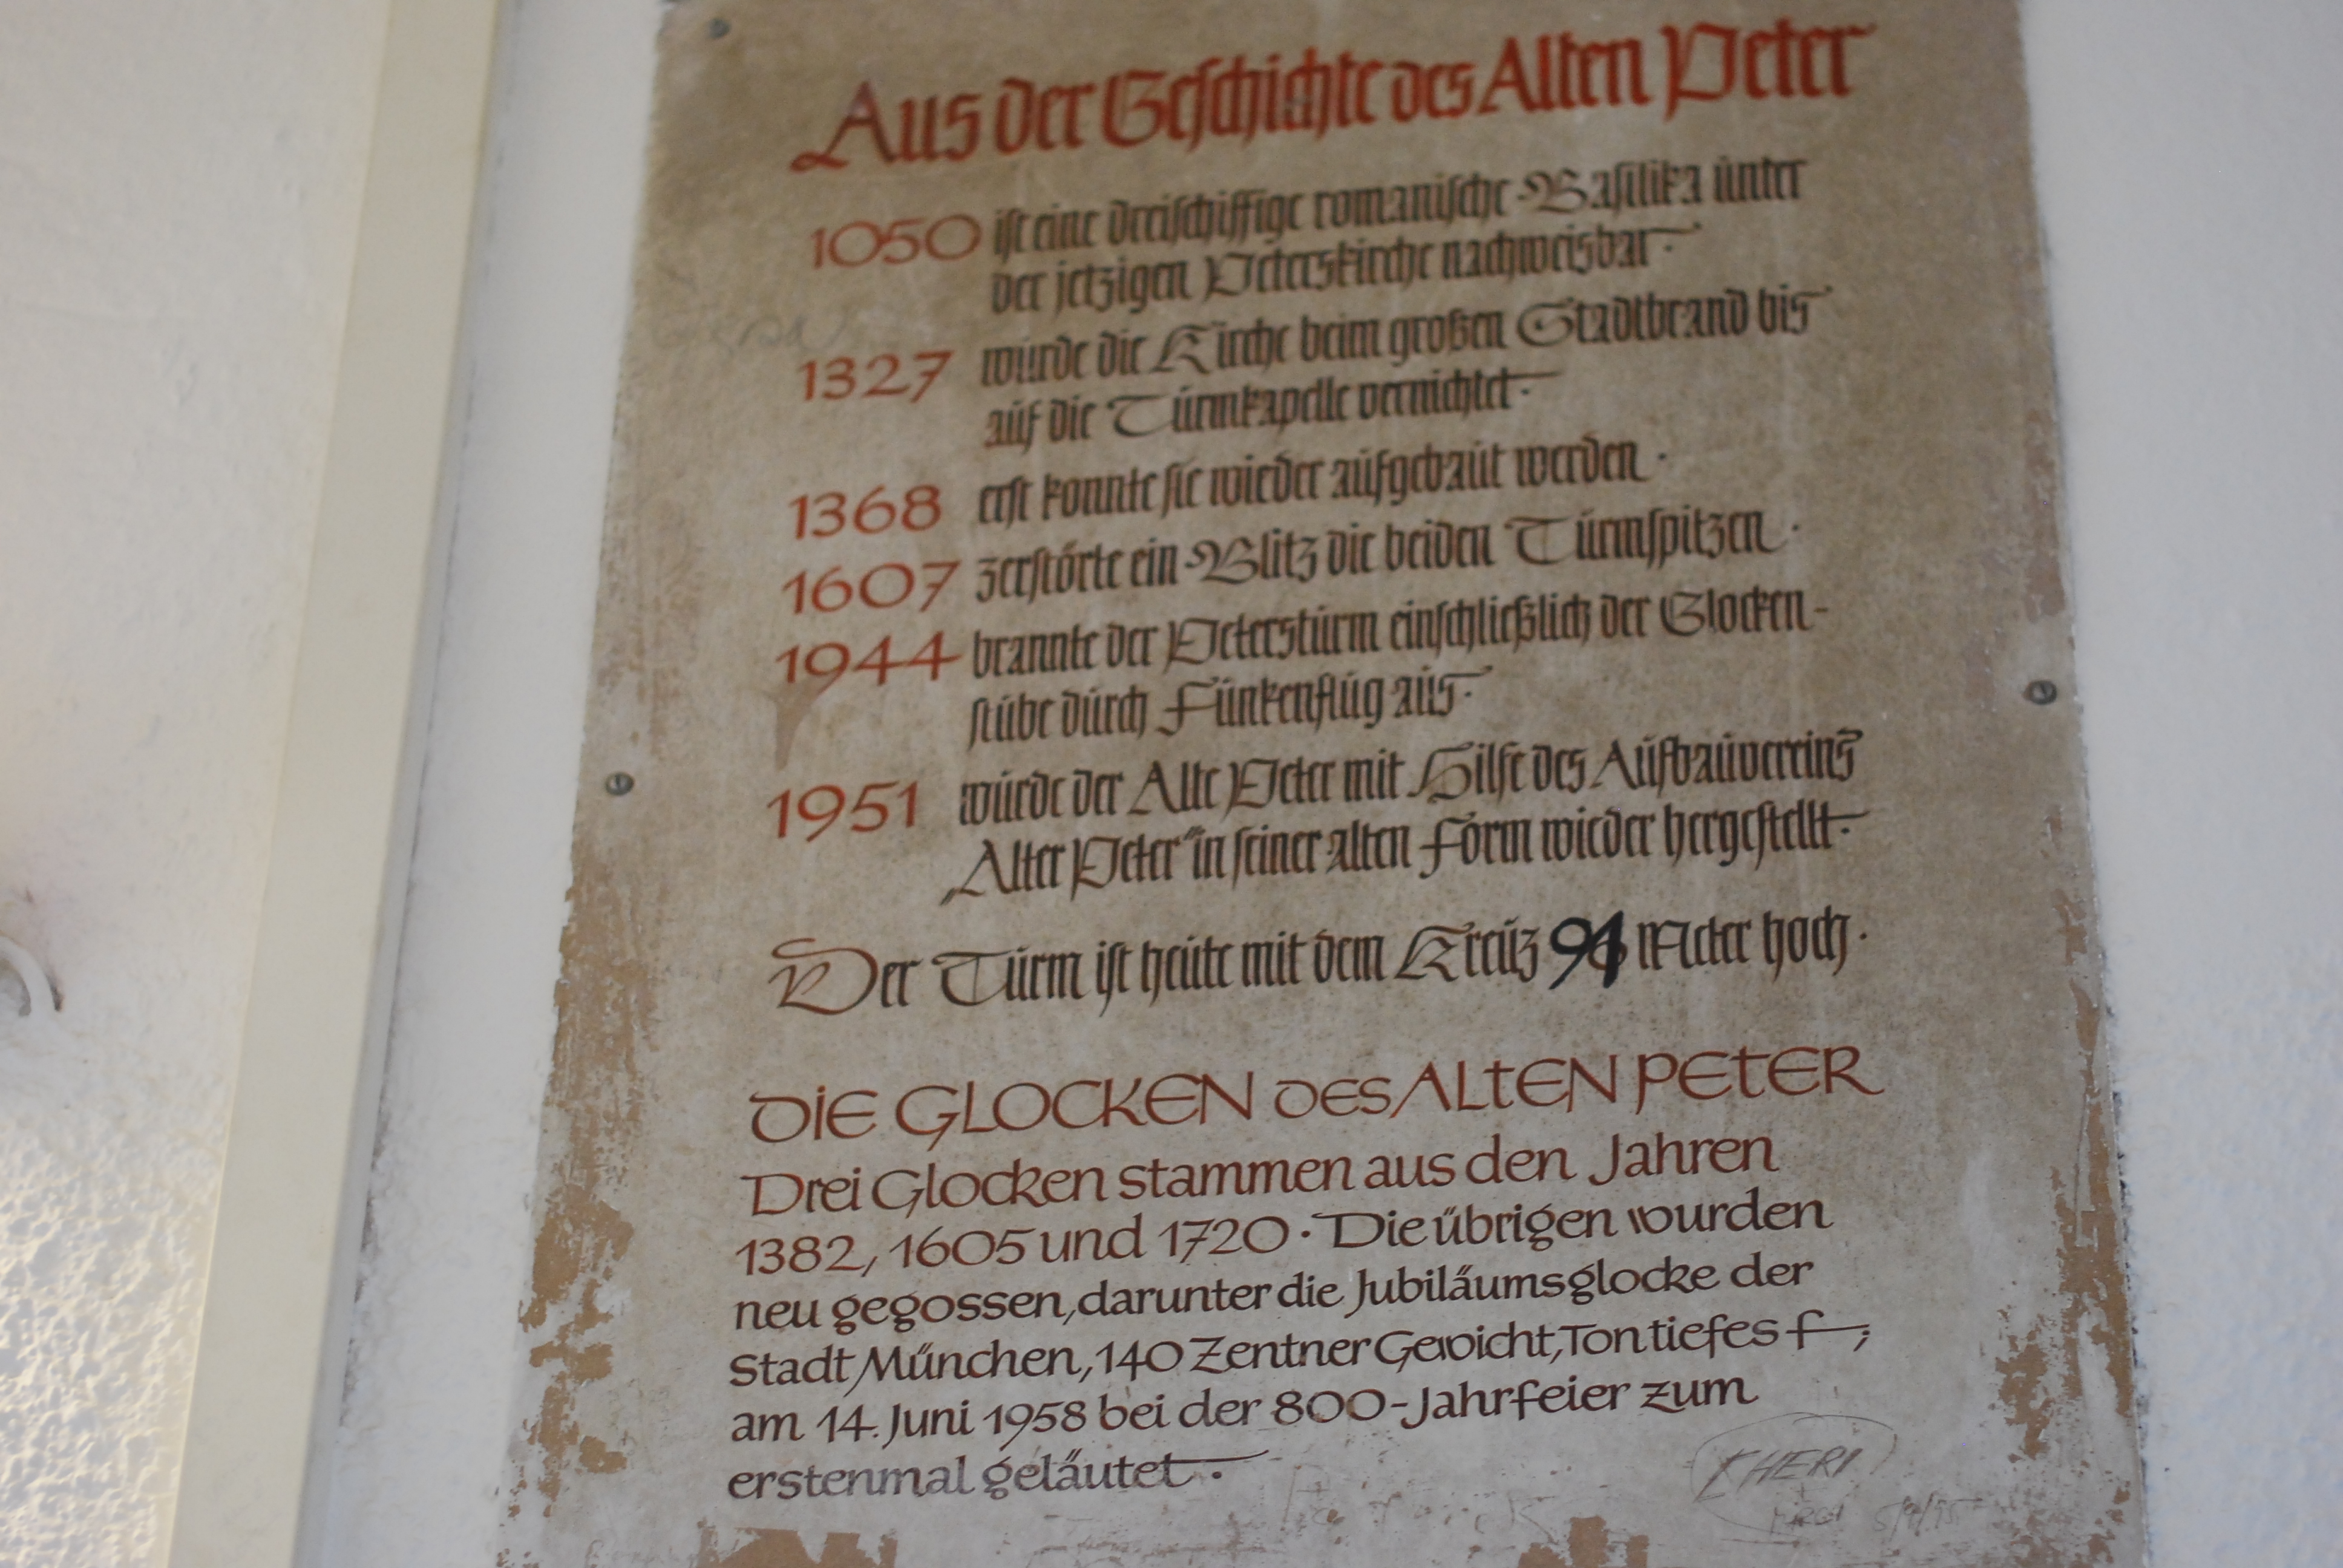 Aus der Geschichte des Alten Peter
1050 ist eine dreischiffige romanische Basilika unter
der jetzigen Peterskirche nachweisbar.
1327 wurde die Kirche beim großen Stadtbrand bis
auf die Turmkapelle vernichtet.
1368 erst konnte sie wieder aufgebaut werden.
1607 zerstörte ein Blitz die beiden Turmspitzen.
1944 brannte der Petersturm einschließlich der Glocken-
stube durch Funkenflug aus.
1951 wurde der Alte Peter mit Hilfe des Aufbauvereins
„Alter Peter" in seiner alten Form wieder hergestellt.
Der Turm ist heute mit dem Kreuz Meter hoch.
DIE GLOCKEN DES ALTEN PETER
Drei Glocken stammen aus den Jahren
1382, 1605 und 1720. Die übrigen wurden
neu gegossen, darunter die Jubiläumsglocke der
Stadt München, 140 Zentner Gewicht, Ton tiefes f,
am 14. Juni 1958 bei der 800-Jahrfeier zum
erstenmal geläutet.
KHERI